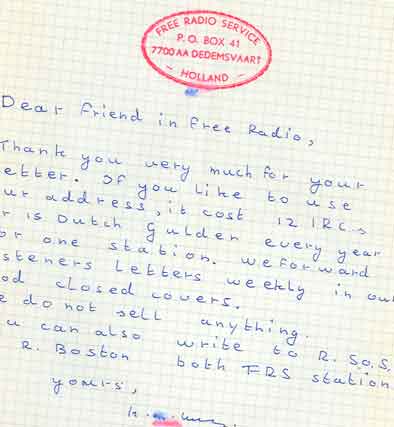 FREE RADIO SERVICE
P.O. BOX 41
7700 AA DEDEMSVAART
- HOLLAND -
Dear Friend in Free Radio,
Thank you very much for your
etter. If you like to use
ur address, it cost 12 IRC's
r 15 Dutch Gulder every year
or one station. we forward
steners Letters weekly in our
od closed covers.
e do not sell anything.
u can also write to R. S.O.S.
R. Boston both FRS station
yours,